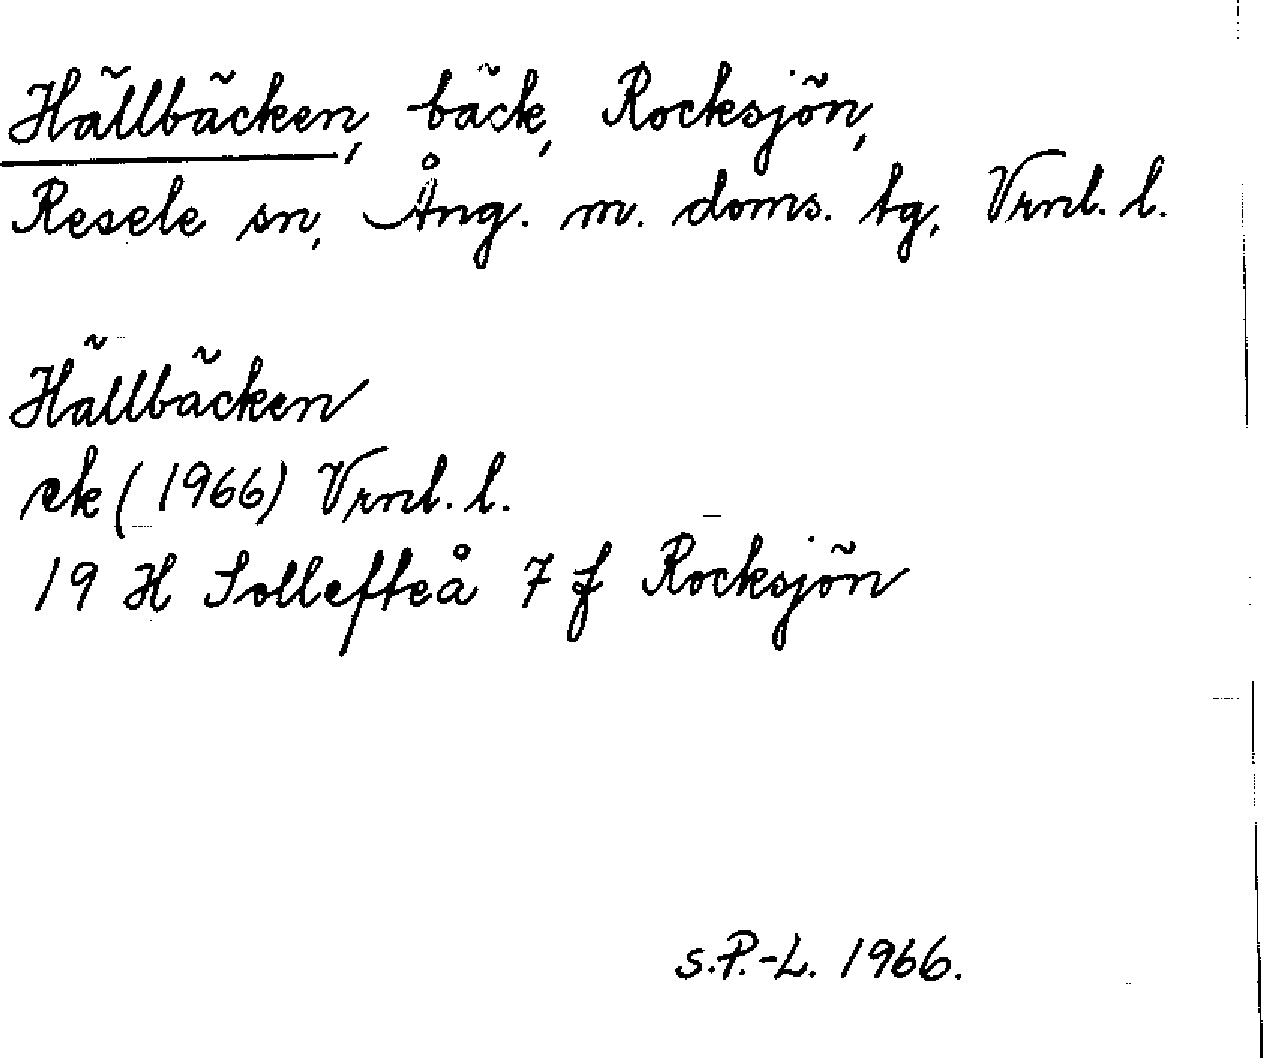 Hällbäcken, bäck, Rocksjön,
Resele sn, Ång. m. doms. tg, Vrnl. l.
Hällbäcken
ek (1966) Vrnl. l.
19 H Sollefteå 7 f Rocksjön
S.P.-L. 1966.